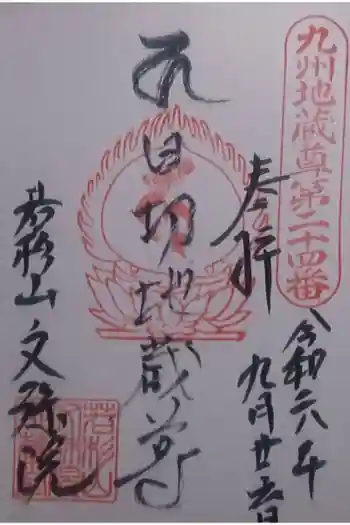 九州地蔵尊第二十四番
奉拝
令和六年
九月廿日
日切地蔵尊
若杉山文殊院
若杉山